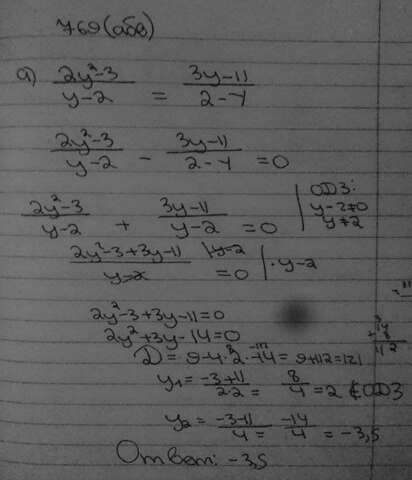 769(абв)
а) 2y²-3 / y-2 = 3y-11 / 2-y
2y²-3 / y-2 - 3y-11 / 2-y = 0
2y²-3 / y-2 + 3y-11 / y-2 = 0 | ОДЗ: y-2≠0 y≠2
2y²-3+3y-11 / y-2 = 0 |y-2 | · y-2
2y²-3+3y-11=0
2y²+3y-14=0
D = 9-4·2·-14 = 9+112=121
y₁ = -3+11 / 2·2 = 8 / 4 = 2 ∉ ОДЗ
y₂ = -3-11 / 4 = -14 / 4 = -3,5
Ответ: -3,5